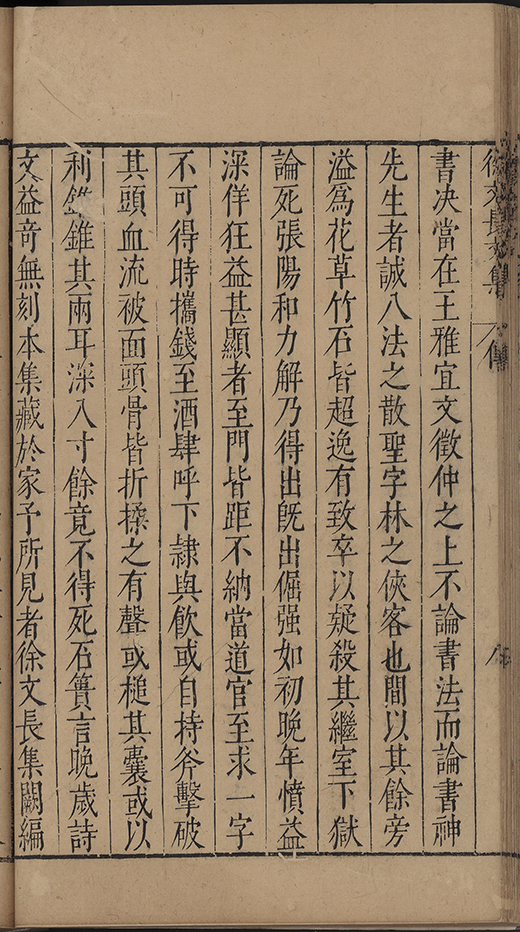 徐文長文集 傳
書决當在王雅宜文徵仲之上不論書法而論書神
先生者誠八法之散聖字林之俠客也間以其餘旁
溢爲花草竹石皆超逸有致卒以疑殺其繼室下獄
論死張陽和力解乃得出旣出倔强如初晚年憤益
深佯狂益甚顯者至門皆距不納當道官至求一字
不可得時攜錢至酒肆呼下隷與飮或自持斧擊破
其頭血流被面頭骨皆折揉之有聲或槌其囊或以
利錐錐其兩耳深入寸餘竟不得死石簣言晚歲詩
文益奇無刻本集藏於家予所見者徐文長集闕編